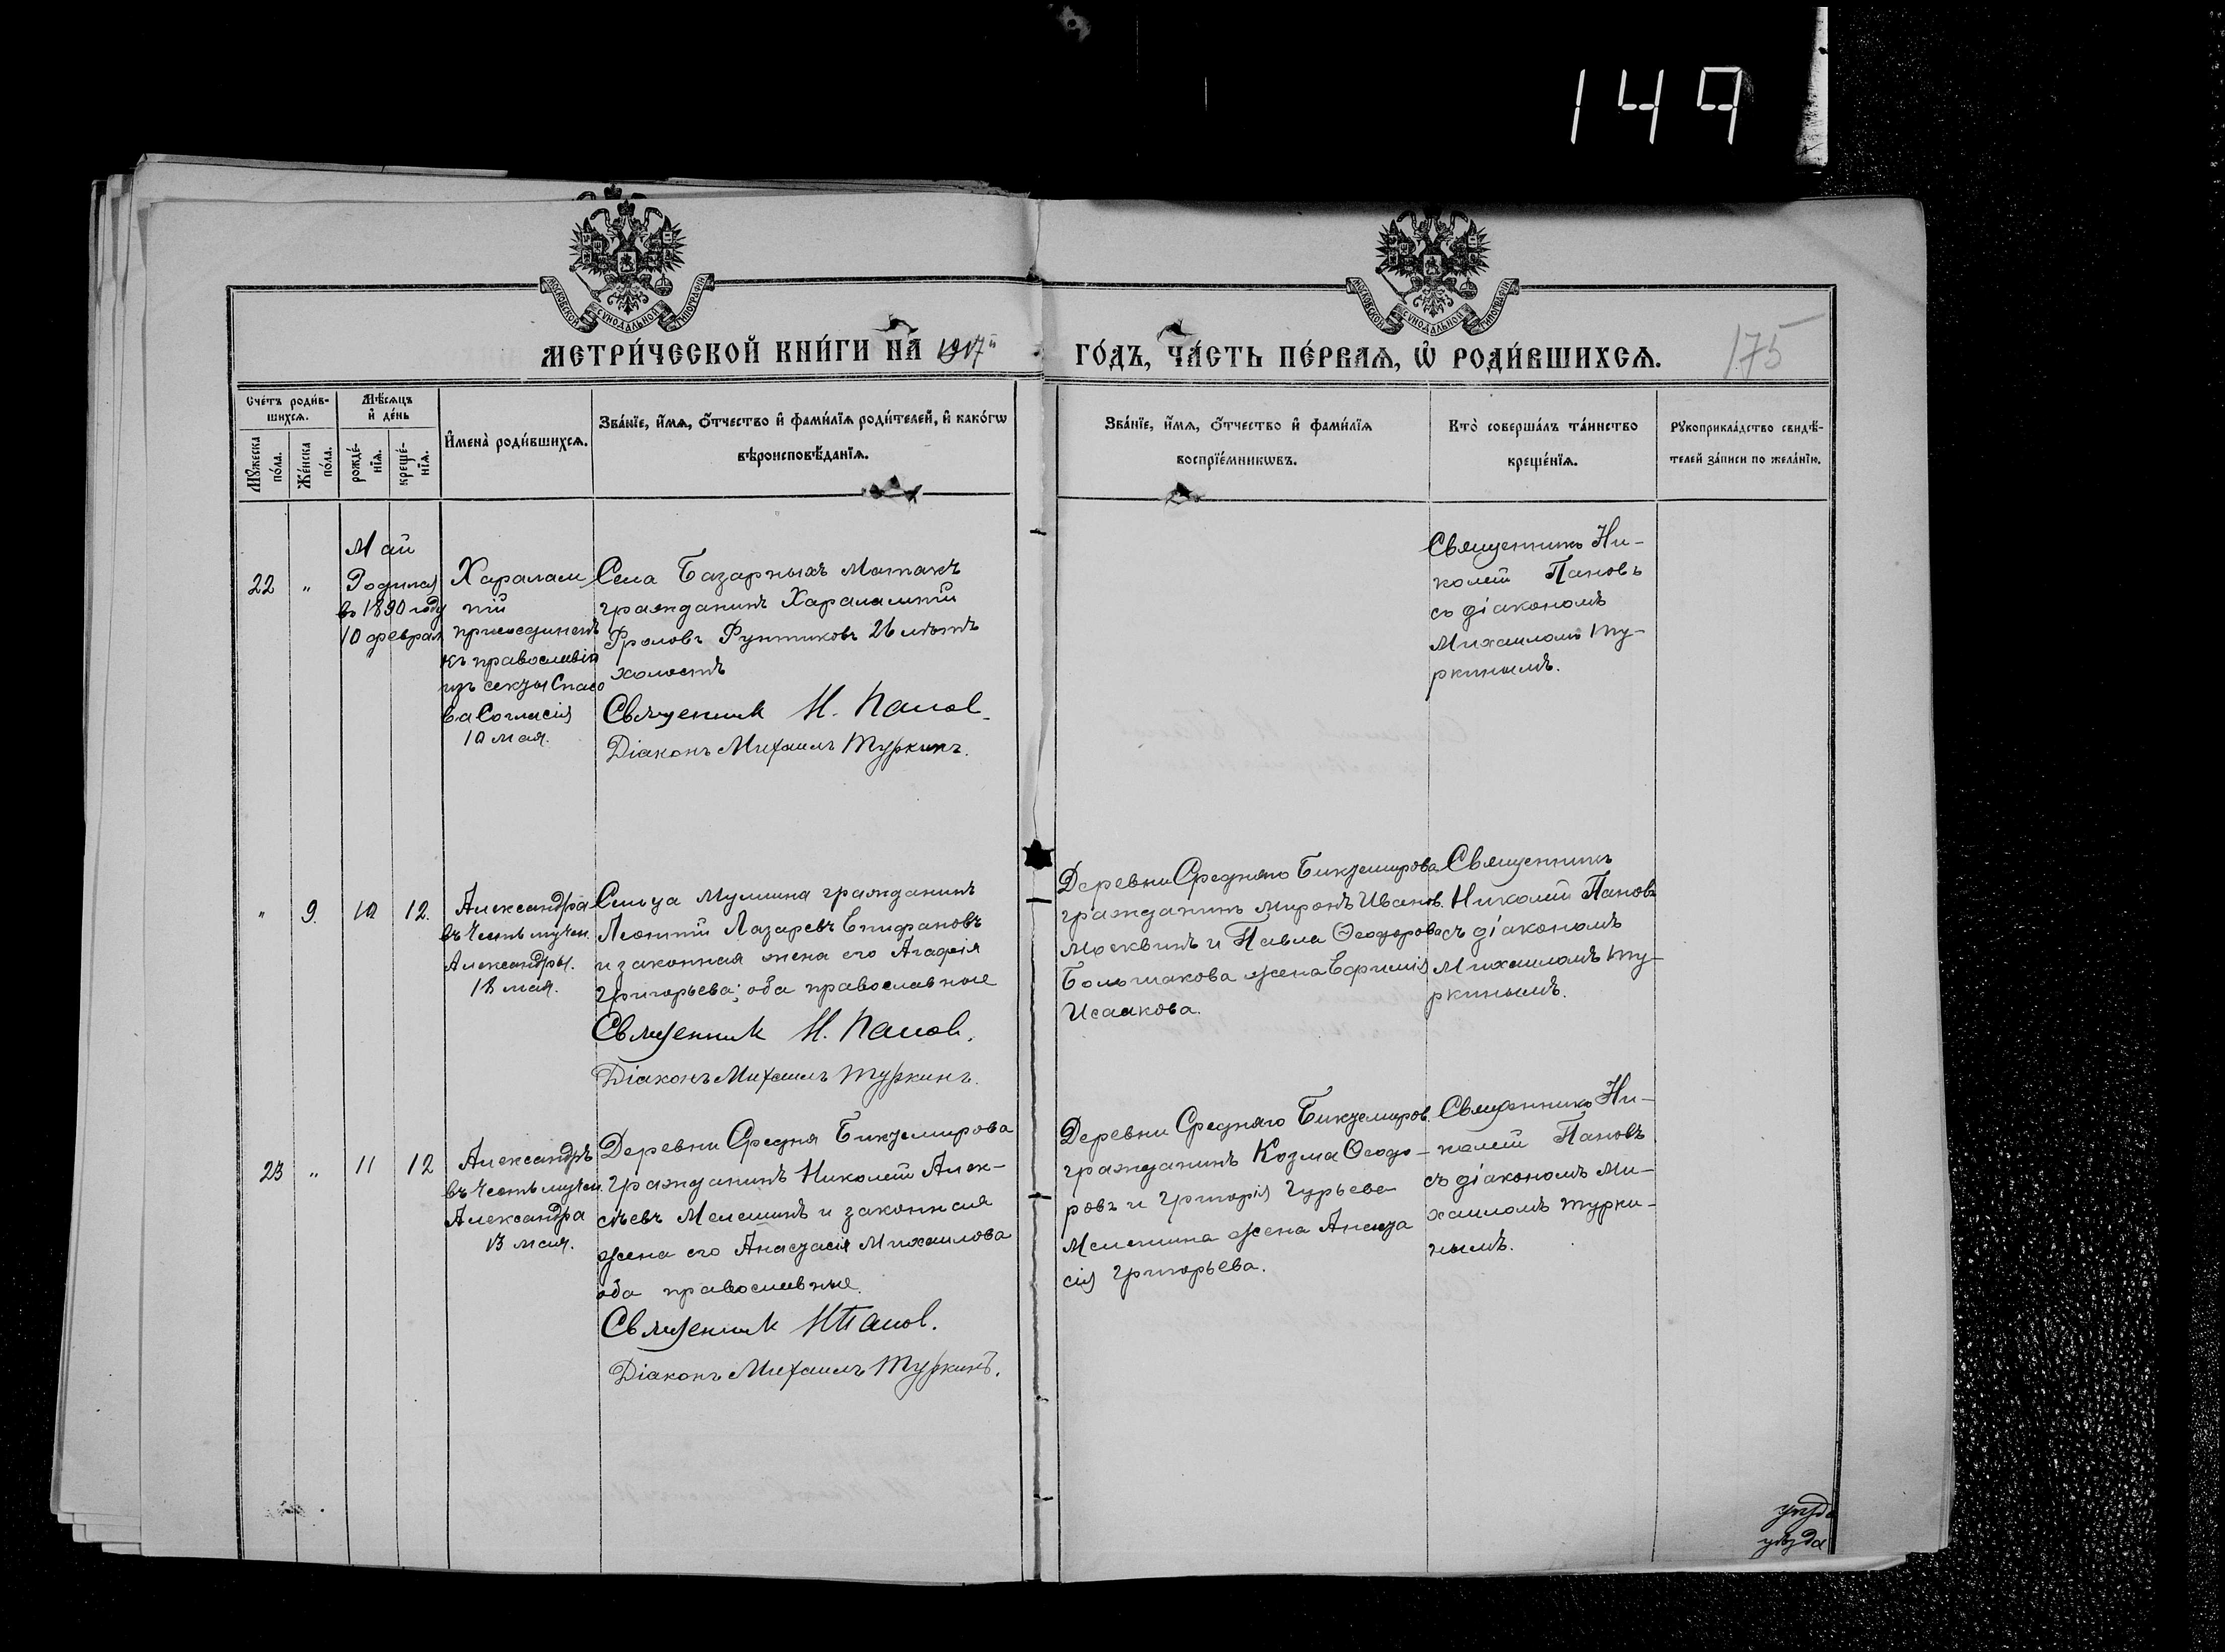 149
МОСКОВСКОЙ СѴНОДАЛЬНОЙ ТИПОГРАФІИ
МОСКОВСКОЙ СѴНОДАЛЬНОЙ ТИПОГРАФІИ
МЕТРИ́ЧЕСКОЙ КНИ́ГИ НА̀ 1917 й
ГО́ДЪ, ЧА́СТЬ ПЕ́РВАѦ, Ѡ҆ РОДИ́ВШИХСѦ.
175
Сче́тъ роди́в-
шихсѧ.
Мꙋ́жеска
по́ла.
Же́нска
по́ла.
Мѣ́сѧцъ
и҆ де́нь
рожде́-
нїѧ.
креще́-
нїѧ.
И҆мена̀ роди́вшихсѧ.
Зва́нїе, и҆́мѧ, ѻ҆́тчество и҆ фами́лїѧ роди́телей, и҆ како́гѡ
вѣроисповѣ́данїѧ.
Зва́нїе, и҆́мѧ, ѻ҆́тчество и҆ фами́лїѧ
воспрїе́мникѡвъ.
Кто̀ соверша́лъ та́инство
креще́нїѧ.
Рꙋкоприкла́дство свидѣ́-
телей за́писи по жела́нїю.
22
"
Май
Родился
въ 1890 году
10 феврал
Харалам
пій
присоединенъ
къ православію
изъ секты Спасо
ва Согласія
10 мая.
Села Базарныхъ Матакъ
гражданинъ Харалампій
Фроловъ 26 лѣтъ
холостъ
Священник Н. Панов.
Діаконъ Михаилъ Туркинъ.
Священникъ Ни-
колай Пановъ
съ діакономъ
Михаиломъ Ту-
ркинымъ.
"
9.
10
12.
Александра
въ Честь мучен.
Александры.
18 мая.
Сельца Муллина гражданинъ
Леонтій Лазаревъ Епифановъ
и законная жена его Агафія
Григорьева; оба православные
Священник Н. Панов.
Діаконъ Михаилъ Туркинъ.
Деревни Средняго Биктемирова
гражданинъ Миронъ Иванов.
Москвинъ и Павла Ѳеодорова
Большакова жена Ефимія
Исаакова.
Священникъ
Николай Пановъ
съ діакономъ
Михаиломъ Ту-
ркинымъ.
23
"
11
12
Александръ
въ Честь мучен.
Александра
13 мая.
Деревни Средня Биктемирова
гражданинъ Николай Алек-
сѣевъ Мелешинъ и законная
жена его Анастасія Михаилова
оба православные.
Священник Н Панов.
Діаконъ Михаилъ Туркинъ.
Деревни Средняго Биктемиров.
гражданинъ Козма Ѳеодо-
ровъ и Григорія Гурьева
Мелешина жена Анаста
сія Григорьева.
Священникъ Ни-
колай Пановъ
съ діакономъ Ми-
хаиломъ Турки-
нымъ.
уѣзда